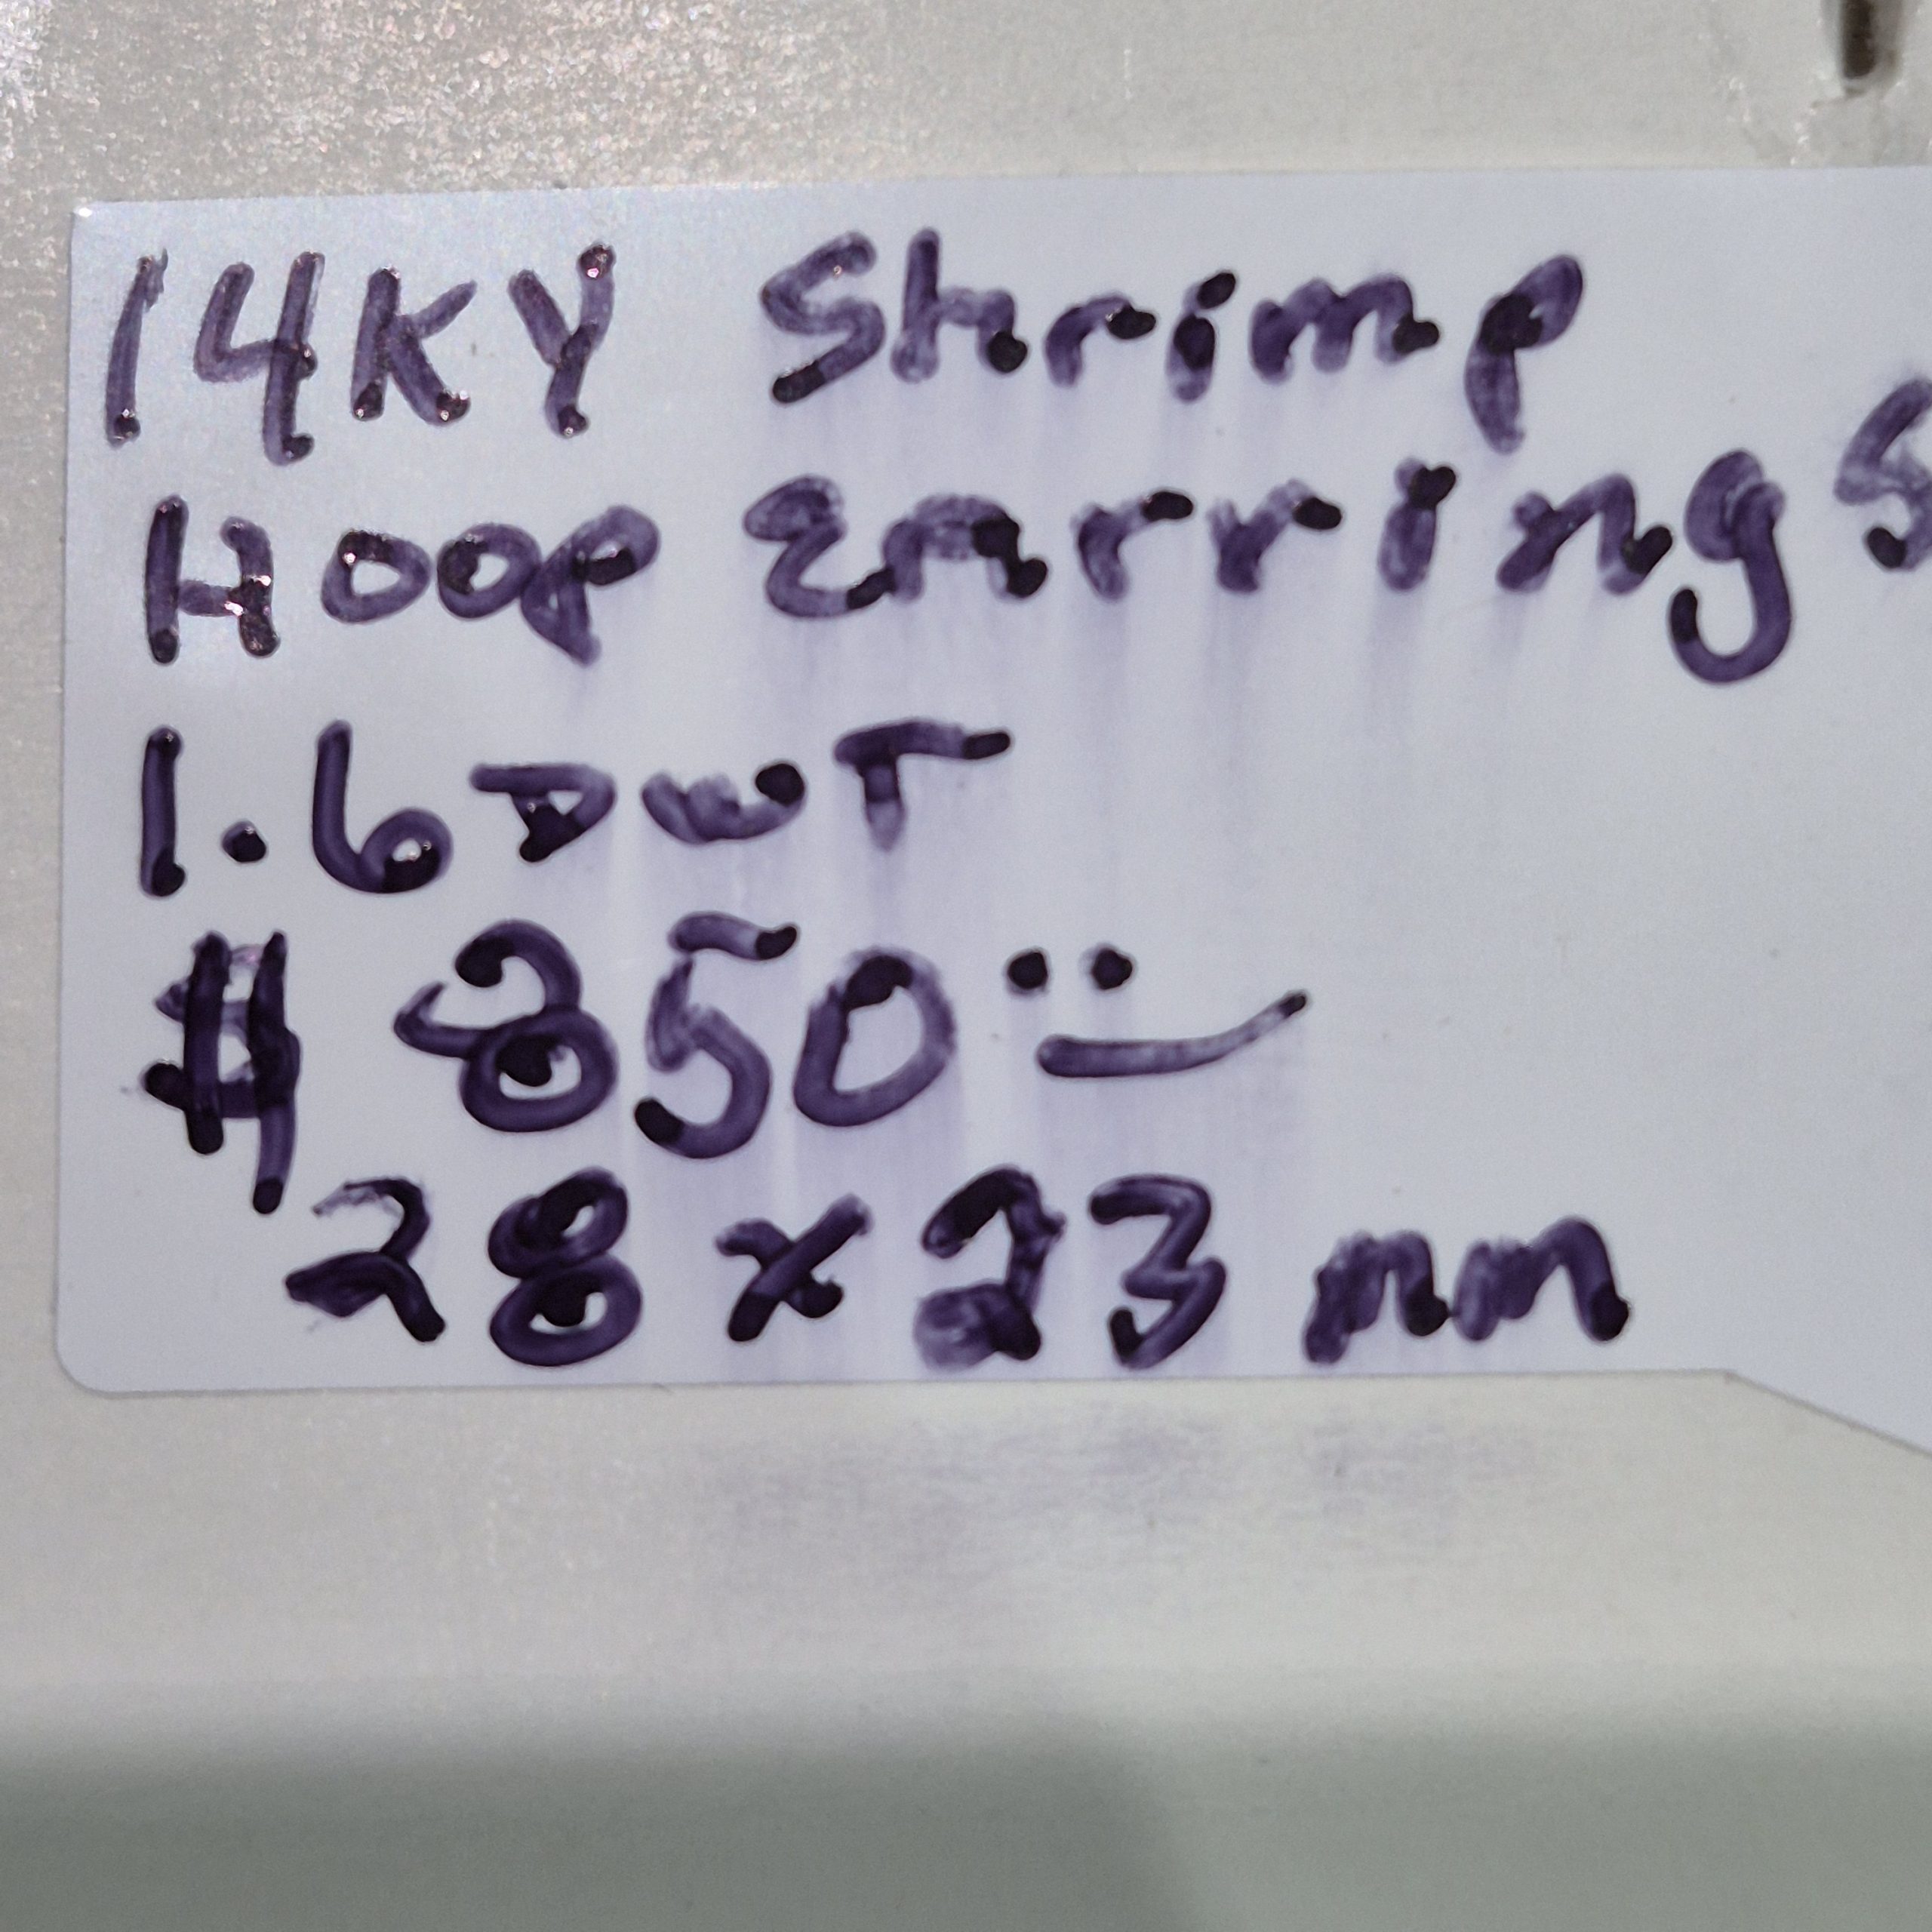 14KY Shrimp
Hoop Earrings
1.6 DWT
$ 850
28 x 23 mm